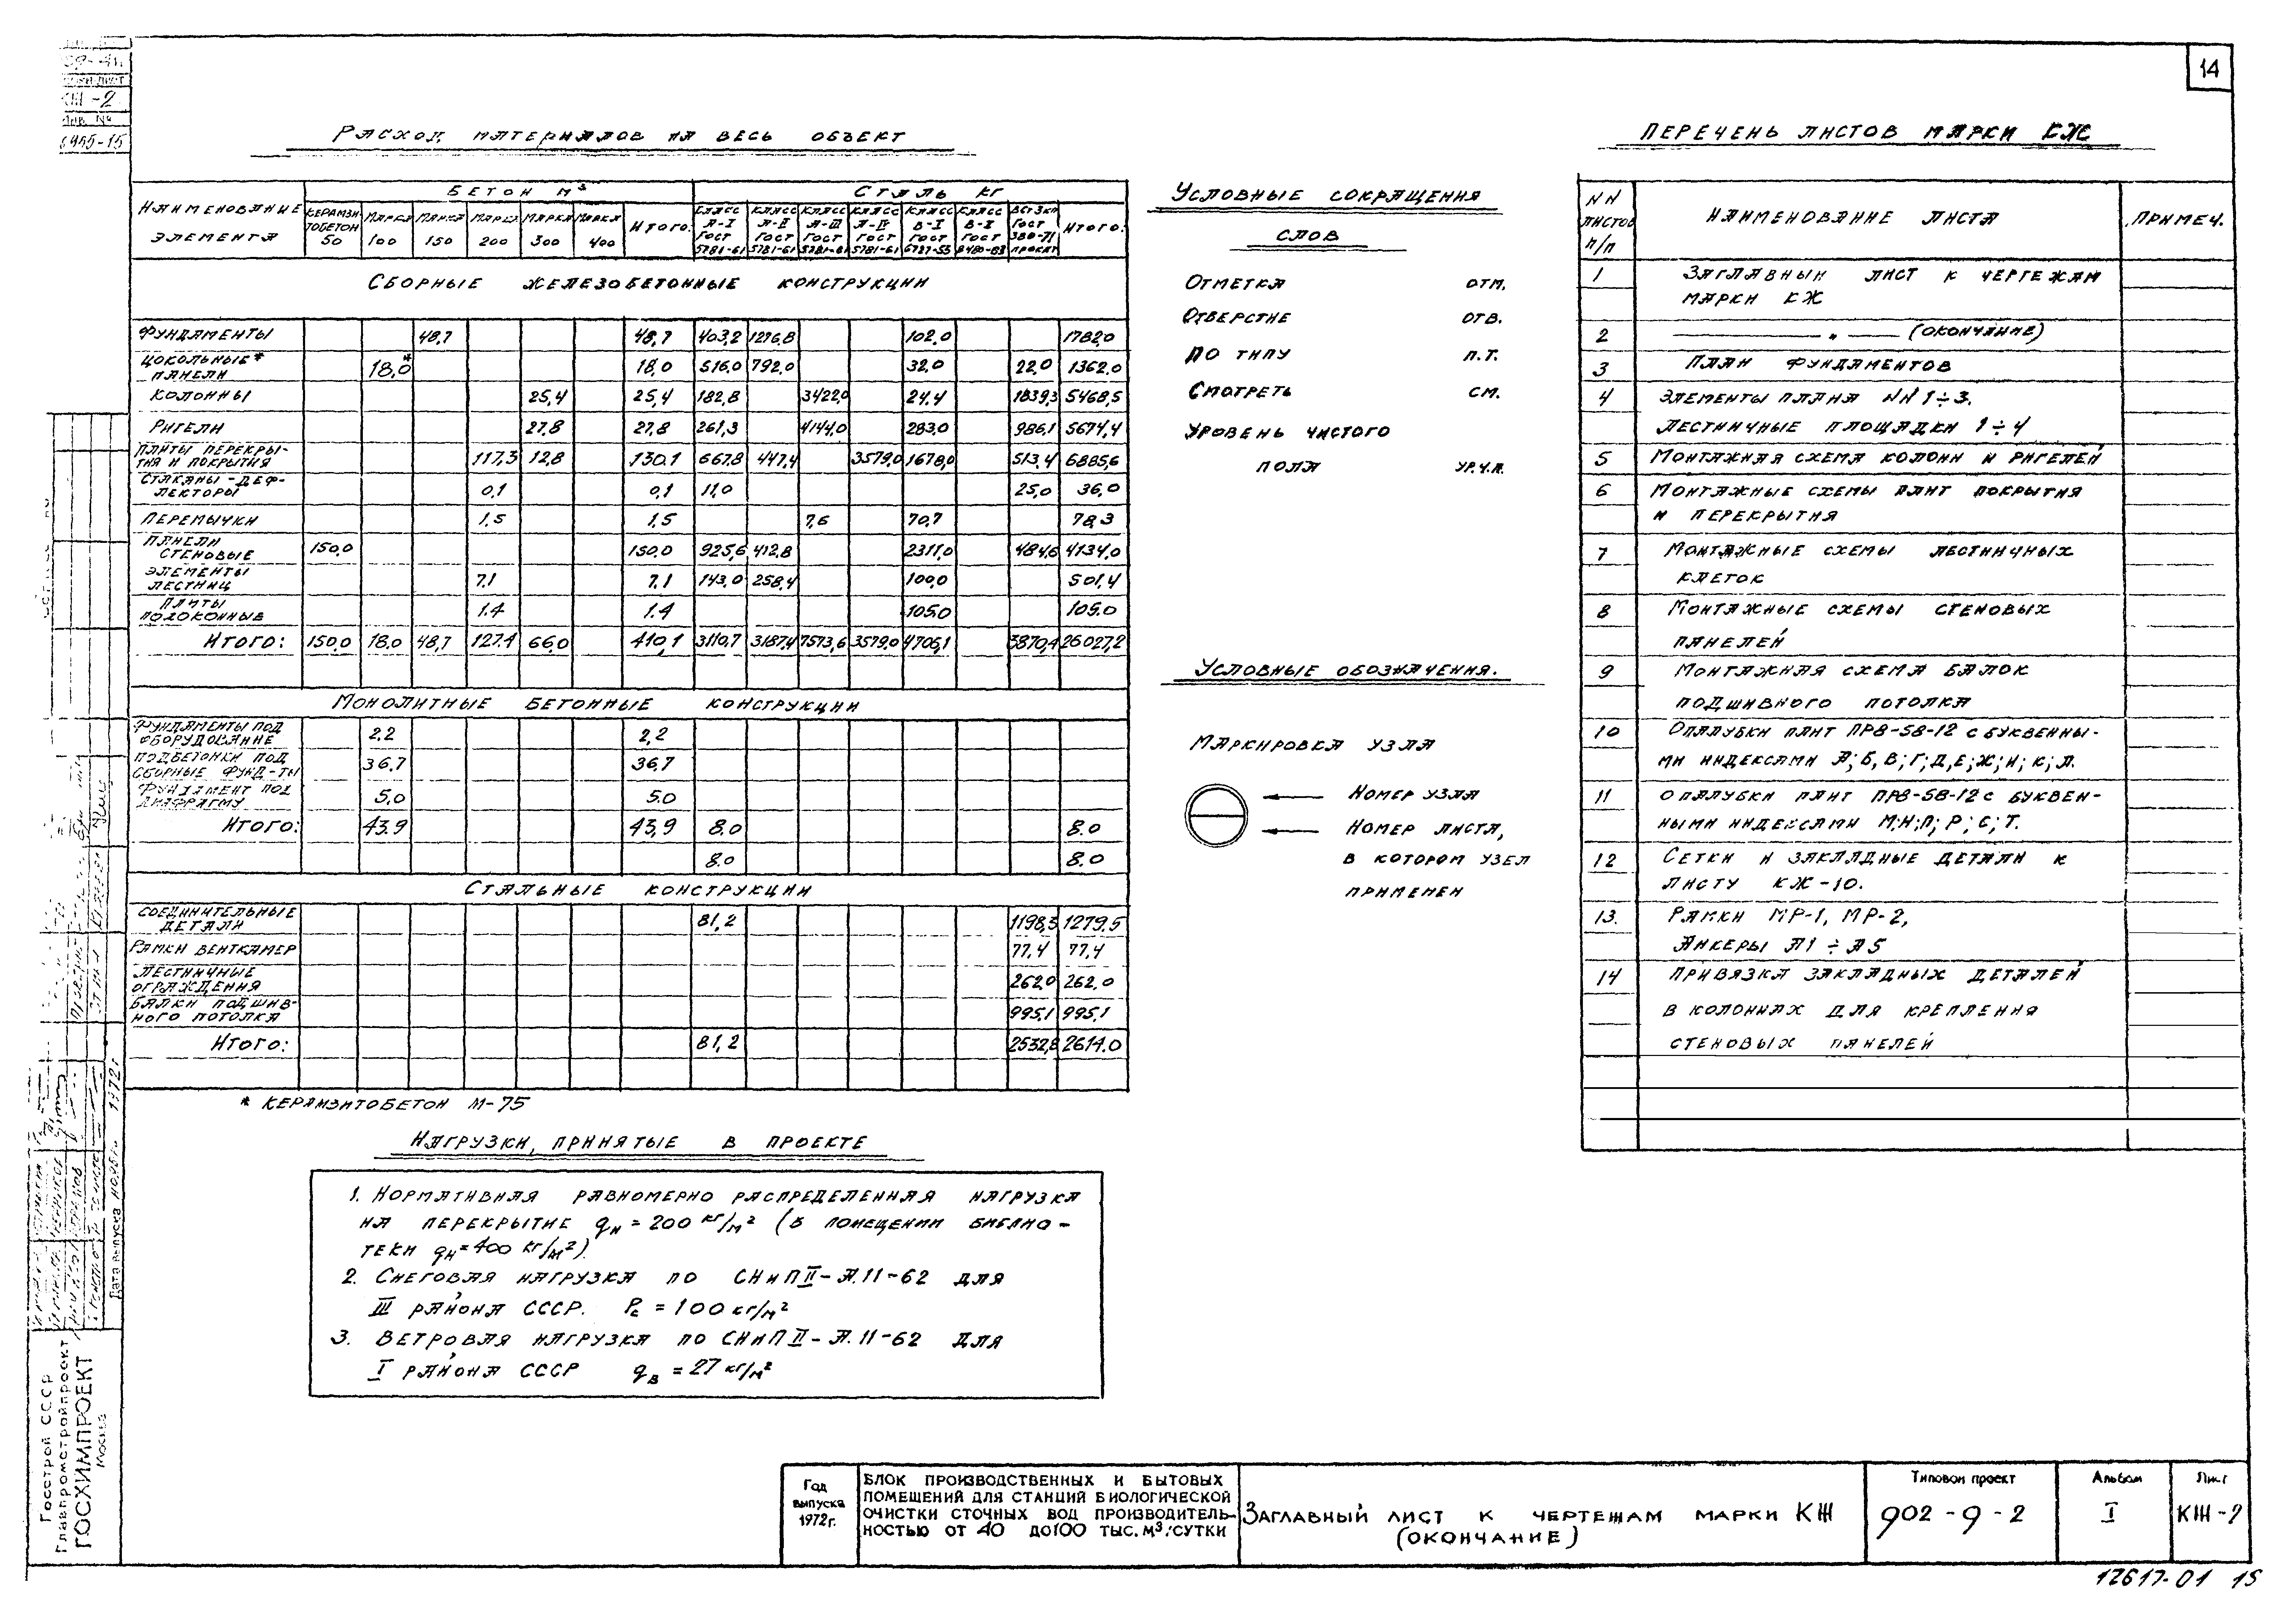 14
КЖ-2
Инв. №
Расход материалов на весь объект
Наименование элемента
Бетон м³
Сталь кг
Керамзитобетон 50
Марка 100
Марка 150
Марка 200
Марка 300
Марка 400
Итого
Класс А-I ГОСТ 5781-61
Класс А-II ГОСТ 5781-61
Класс А-III ГОСТ 5781-61
Класс ГОСТ 5781-61
Класс В-I ГОСТ 6727-53
Класс В-I ГОСТ
ГОСТ 380-71 прокат
Итого.
Сборные железобетонные конструкции
Фундаменты 48,7 48,7 403,2 1276,8 102,0 1782,0
Цокольные* панели 18,0* 18,0 516,0 792,0 32,0 22,0 1362,0
Колонны 25,4 25,4 182,8 3422,0 24.4 1839,3 5468,5
Ригели 27,8 27,8 261,3 4144,0 283,0 986,1 5674,4
Плиты перекрытия и покрытия 117,3 12,8 130,1 667,8 447,4 3579,0 1678,0 513,4 6885,6
Стаканы-дефлекторы 0,1 0,1 11,0 25,0 36,0
Перемычки 1,5 1,5 7,6 70,7 78,3
Панели стеновые 150,0 150,0 925,6 412,8 2311,0 484,6 4134,0
Элементы лестниц 7.1 7.1 143,0 258,4 100,0 501,4
Плиты подоконные 1.4 1.4 105.0 105.0
Итого: 150,0 18.0 48,7 127.4 66,0 410,1 3110,7 3187,4 7573,6 3579,0 4706,1 3870,4 26027,2
Монолитные бетонные конструкции
Фундаменты под оборудование 2.2 2,2
Подбетонки под сборные фунд-ты 36,7 36,7
Фундамент под диафрагму 5.0 5.0
Итого: 43.9 43,9 8.0 8.0
8.0 8.0
Стальные конструкции
Соединительные детали 81,2 1198,3 1279,5
Рамки венткамер 77,4 77,4
Лестничные ограждения 262,0 262,0
Балки подшивного потолка 995,1 995,1
Итого: 81,2 2532,8 2614.0
* Керамзитобетон М-75
Нагрузки, принятые в проекте
1. Нормативная равномерно распределенная нагрузка
на перекрытие qн = 200 кг/м² (в помещении библио-
теки qн = 400 кг/м²).
2. Снеговая нагрузка по СНиП II-А.11-62 для
III района СССР. Pс = 100 кг/м²
3. Ветровая нагрузка по СНиП II-А.11-62 для
I района СССР qв = 27 кг/м²
Условные сокращения
слов
Отметка отм.
Отверстие отв.
По типу п.т.
Смотреть см.
Уровень чистого
пола ур.ч.п.
Условные обозначения.
Маркировка узла
Номер узла
Номер листа,
в котором узел
применен
Перечень листов марки КЖ
NN листов п/п
Наименование листа
Примеч.
1 Заглавный лист к чертежам
марки КЖ
2 " (окончание)
3 План фундаментов
4 Элементы плана NN 1÷3.
Лестничные площадки 1÷4
5 Монтажная схема колонн и ригелей
6 Монтажные схемы плит покрытия
и перекрытия
7 Монтажные схемы лестничных
клеток
8 Монтажные схемы стеновых
панелей
9 Монтажная схема балок
подшивного потолка
10 Опалубки плит ПР8-58-12 с буквенны-
ми индексами А; Б, В; Г; Д, Е; Ж; И; К; Л.
11 Опалубки плит ПР8-58-12 с буквен-
ными индексами М; Н; П; Р; С; Т.
12 Сетки и закладные детали к
листу КЖ-10.
13. Рамки МР-1, МР-2,
Анкеры А1÷А5
14 Привязка закладных деталей
в колоннах для крепления
стеновых панелей
Дата выпуска нояб. 1972г
Госстрой СССР
Главпромстройпроект
ГОСХИМПРОЕКТ
Москва
Год
выпуска
1972г.
Блок производственных и бытовых
помещений для станций биологической
очистки сточных вод производитель-
ностью от 40 до 100 тыс. м³/сутки
Заглавный лист к чертежам марки КЖ
(окончание)
Типовой проект
902-9-2
Альбом
I
Лист
КЖ-2
12617-01 15